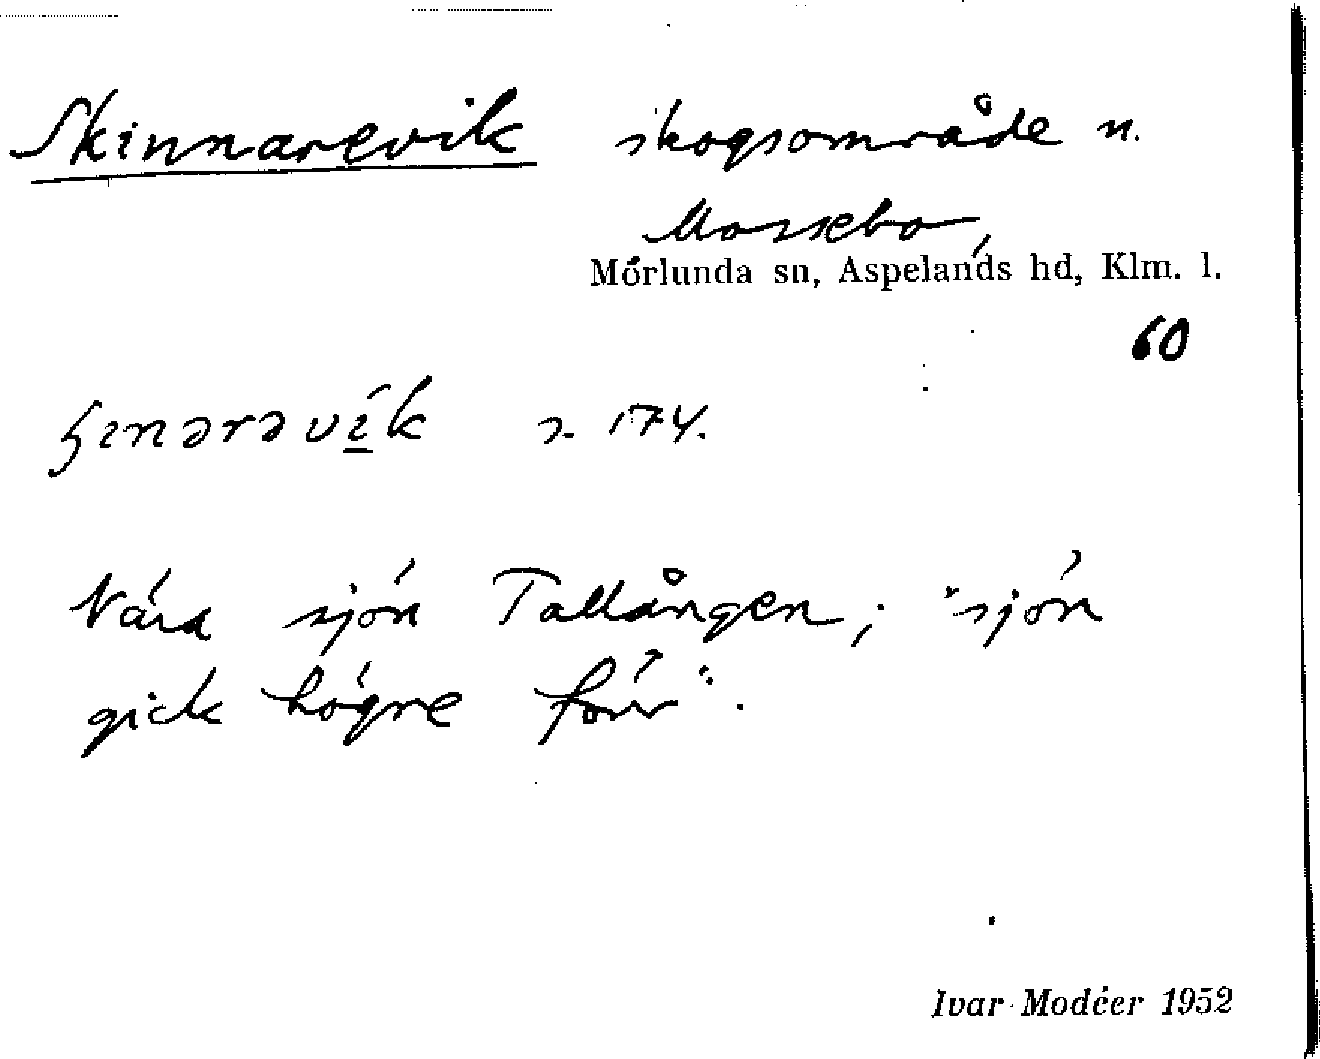 Skinnarevik skogsområde n.
Mossebo,
Mörlunda sn, Aspelands hd, Klm. l.
60
ʂɪnərəvɪ́k s. 174.
Nära sjön Tallången; "sjön
gick högre förr".
Ivar Modéer 1952